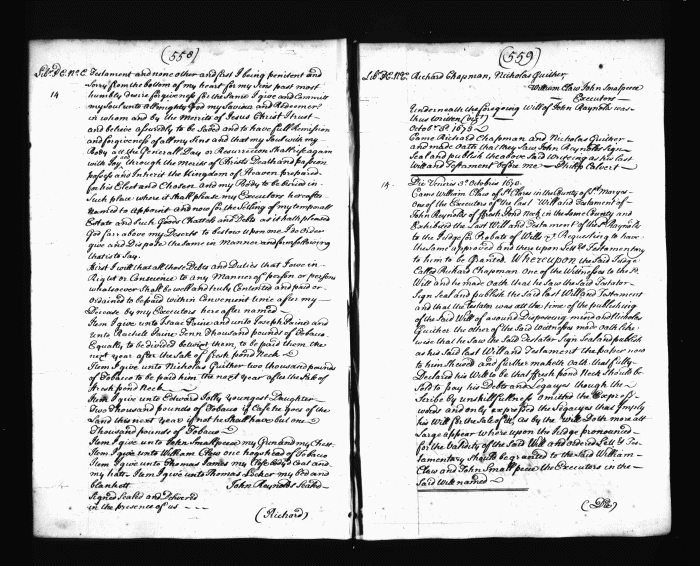 (558)
Lib: DC. No. C. Testament and none other and first I being penitent and
14
Sorry from the bottom of my heart for my Sins past most
humbly desire forgiveness for the Same I give and Committ
my Soul unto Almighty God my Saviour and Redeemer
in whom and by the Merits of Jesus Christ I trust
and believe assuredly to be Saved and to have full Remission
and forgiveness of all my Sins and that my Soul with my
Body at the General Day of Resurrection Shall rise again
with Joy and through the Merits of Christs Death and passion
possess and Inherit the Kingdom of Heaven prepared
for his Elect and Chosen And my Body to be buried in
Such place where it shall please my Executors hereafter
named to Appoint and now for the Settling of my temporall
Estate and Such Goods Chattels and Debts as it hath pleased
God far above my Deserts to bestow upon me I do Order
give and Dispose the Same in Manner and form following
that is to Say
First I will that all those Debts and Duties that I owe in
Right or Conscience to any Manner of person or persons
whatsoever Shall be well and truly Contented and paid or
ordained to be paid within Convenient time after my
Decease by my Executors here after named
Item I give unto Isaac Paine and unto Joseph Paine and
unto Rachell Paine Tenn Thousand pounds of Tobacco
Equally to be divided betwixt them, to be paid them the
next year after the Sale of Fresh pond Neck
Item I give unto Nicholas Guither two thousand pounds
of Tobacco to be paid him the next year after the Sale of
Fresh pond Neck
Item I give unto Edward Jolly youngest Daughter
Two thousand pounds of Tobacco if Case he goes of the
Land this next year if not he shall have but one
Thousand pounds of Tobacco
Item I give unto John Smallpeece my Gun and my Chest
Item I give unto William Claw one hogshead of Tobacco
Item I give unto Thomas James my Close bodyed Coat and
my hatt Item I give unto Thomas Locker my bed and
blankett John Raynolds Sealed
Signed Sealed and Delivered
in the presence of us
(Richard)
(559)
Lib: DC. No. C. Richard Chapman, Nicholas Guither,
William Claw John Smalpeece
Executors
Underneath the foregoing Will of John Raynolds was
thus written (vizt)
October 3d 1678
Came Richard Chapman and Nicholas Guither
and made Oath that they Saw John Raynolds Sign
Seal and publish the above Said Writing as his last
will and Testament before me Philip Calvert
14. Die Veneris 3o Octobris 1678
Came William Claw of St. Clares in the County of St. Marys
one of the Executors of the last Will and Testament of
John Raynolds of Fresh Pond Neck in the Same County and
Exhibited the Last Will and Testament of the Sd. Raynolds
to the Judge for Probate of Wills &c. Requesting to have
the Same approved and they upon Letts. Testamentary
to him to be Granted. Whereupon the Said Judge
Called Richard Chapman One of the Witnesses to the Sd.
Will and he made Oath that he Saw the Said Testator
Sign Seal and publish the Said last Will and Testament
and that the Testator was att the time of the publishing
of the Said Will of a sound Disposeing mind and Nicholas
Guither the other of the Said Witnesses made Oath like
wise that he Saw the Said Testator Sign Seal and publish
as his Said last Will and Testament the paper now
to him Shewed and further maketh Oath that fully
Declared his Will to be that Fresh pond Neck Should be
Sold to pay his Debts and Legacyes though the
Scribe by unskilfullness omitted the Express
words and only expressed the Legacyes that Imply
his Will for the Sale of it, as by the Will Doth more att
Large appear whereupon the Judge pronounced
for the Validity of the Said Will and ordered Letts. Tes
tamentary Should be granted to the Said William
Claw and John Smallpeece the Executors in the
Said Will named
(Die)